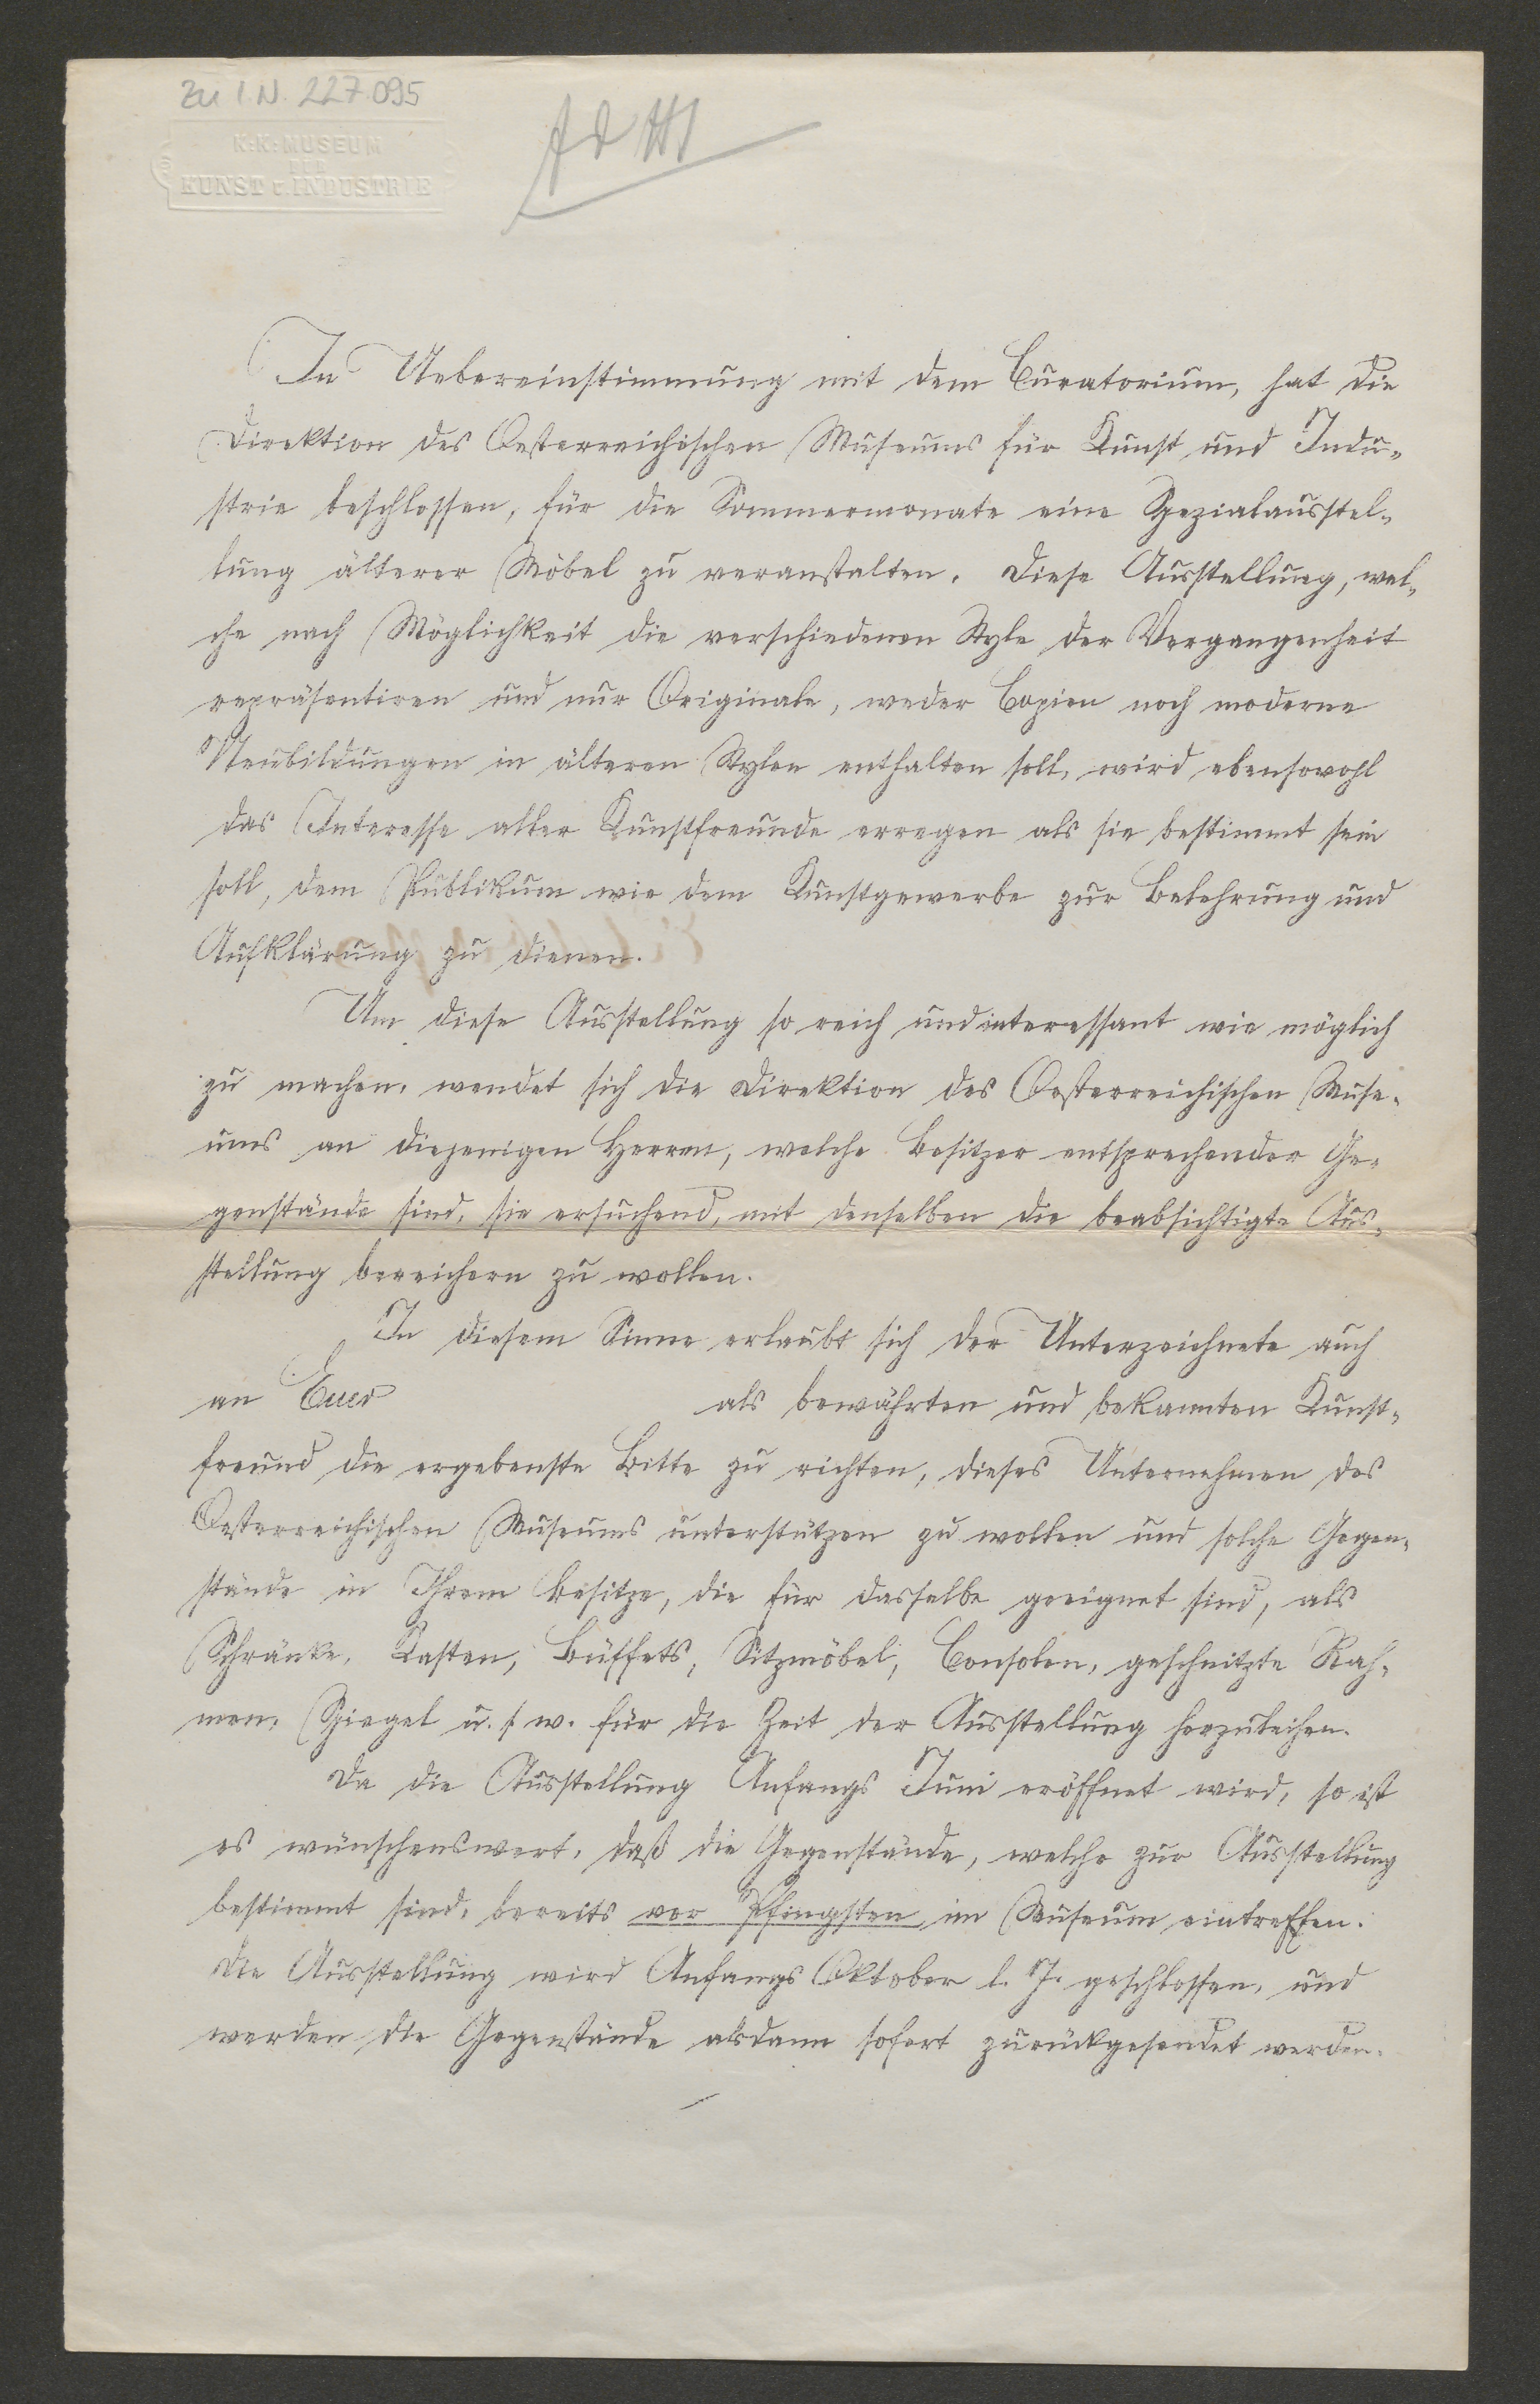 Zu I.N. 227.095
K: K: MUSEUM
FÜR
KUNST u. INDUSTRIE
In Uebereinstimmung mit dem Curatorium, hat die
Direktion des Oesterreichischen Museums für Kunst und Indu-
strie beschlossen, für die Sommermonate eine Spezialausstel-
lung älterer Möbel zu veranstalten. Diese Ausstellung, wel-
che nach Möglichkeit die verschiedenen Style der Vergangenheit
repräsentiren und nur Originale, weder Copien noch moderne
Neubildungen in älteren Stylen enthalten soll, wird ebensowohl
das Interesse aller Kunstfreunde erregen als sie bestimmt sein
soll, dem Publikum wie dem Kunstgewerbe zur Belehrung und
Aufklärung zu dienen.
Um diese Ausstellung so reich und interessant wie möglich
zu machen, wendet sich die Direktion des Oesterreichischen Muse-
ums an diejenigen Herren, welche Besitzer entsprechender Ge-
genstände sind, sie ersuchend, mit denselben die beabsichtigte Aus-
stellung bereichern zu wollen.
In diesem Sinne erlaubt sich der Unterzeichnete auch
an Euer als bewährten und bekannten Kunst-
freund die ergebenste Bitte zu richten, dieses Unternehmen des
Oesterreichischen Museums unterstützen zu wollen und solche Gegen-
stände in Ihrem Besitze, die für dasselbe geeignet sind, als
Schränke, Kasten, Büffets, Sitzmöbel, Consolen, geschnitzte Rah-
men, Spiegel u. s. w. für die Zeit der Ausstellung herzuleihen.
Da die Ausstellung Anfangs Juni eröffnet wird, so ist
es wünschenswert, daß die Gegenstände, welche zur Ausstellung
bestimmt sind, bereits vor Pfingsten im Museum eintreffen.
Die Ausstellung wird Anfangs Oktober l. J. geschlossen, und
werden die Gegenstände alsdann sofort zurückgesendet werden.